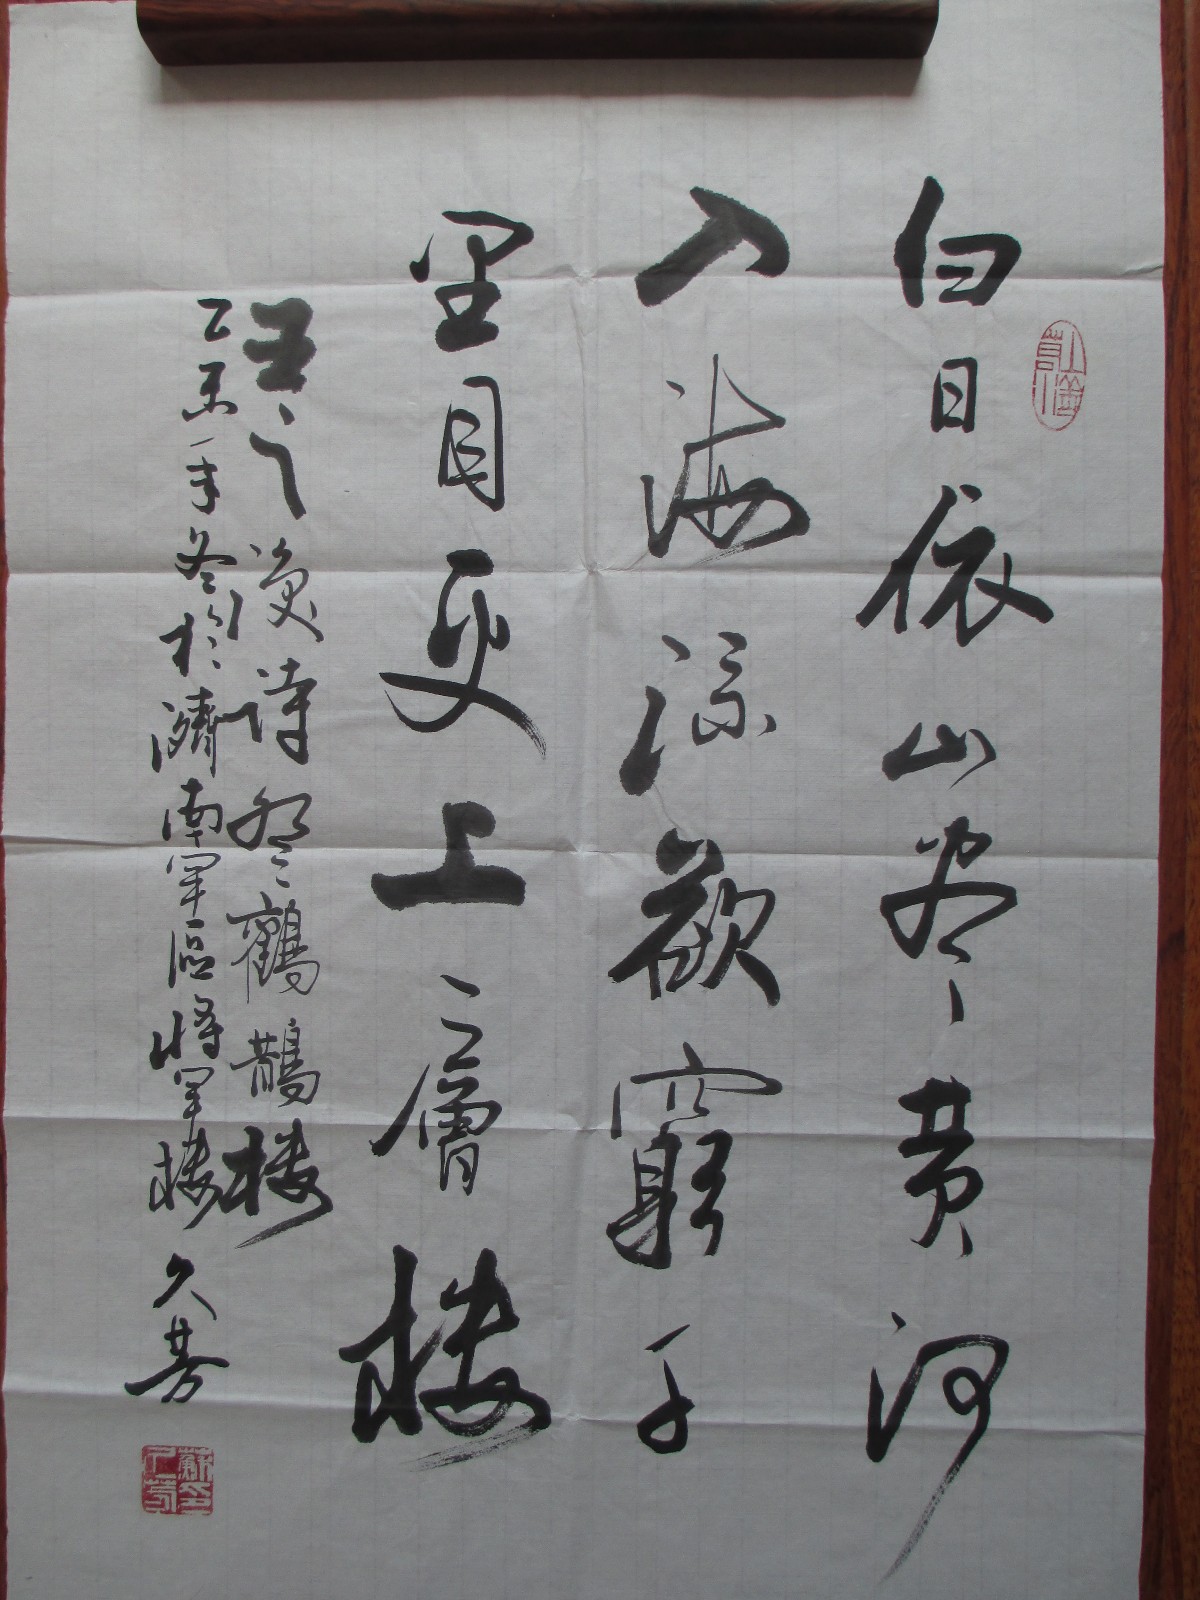 白日依山尽黄河
入海流欲窮千
里目更上一層楼
王之涣诗登鹳鹊楼
乙未年冬於濟南军區将军楼久芳